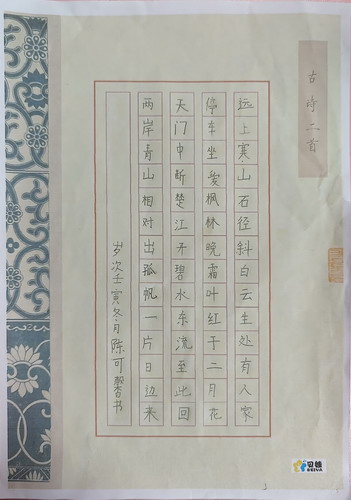 古诗二首
远上寒山石径斜白云生处有人家
停车坐爱枫林晚霜叶红于二月花
天门中断楚江开碧水东流至此回
两岸青山相对出孤帆一片日边来
岁次壬寅冬月陈可馨书
贝德
BEIVA